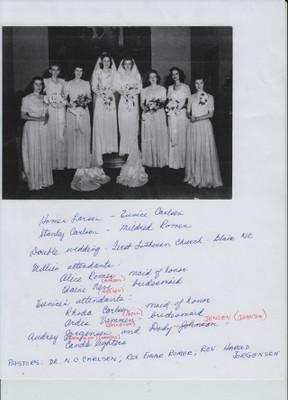 Homer Larsen - Eunice Carlsen
Stanley Carlsen - Mildred Romer
Double wedding - First Lutheran Church - Blair NE
Millie's attendants:
Alice Romer - maid of honor
Elaine - bridesmaid
Eunice's attendants:
Rhoda Carlsen - maid of honor
Ardis Vammen - bridesmaid
JENSEN (JOHNSON)
Audrey Jorgensen and Dody Johnson
Candle lighters
PASTORS: DR. N.C. CARLSEN; REV EINAR ROMER; REV. HAROLD
JORGENSEN